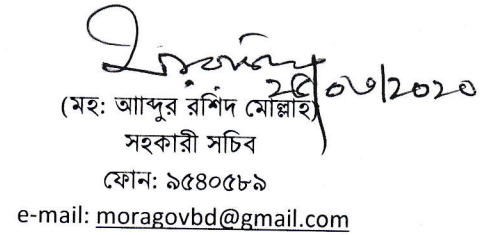 ২৫/০৬/২০২০
(মহ: আাব্দুর রশিদ মোল্লাহ)
সহকারী সচিব
ফোন: ৯৫৪০৫৮৯
e-mail: moragovbd@gmail.com